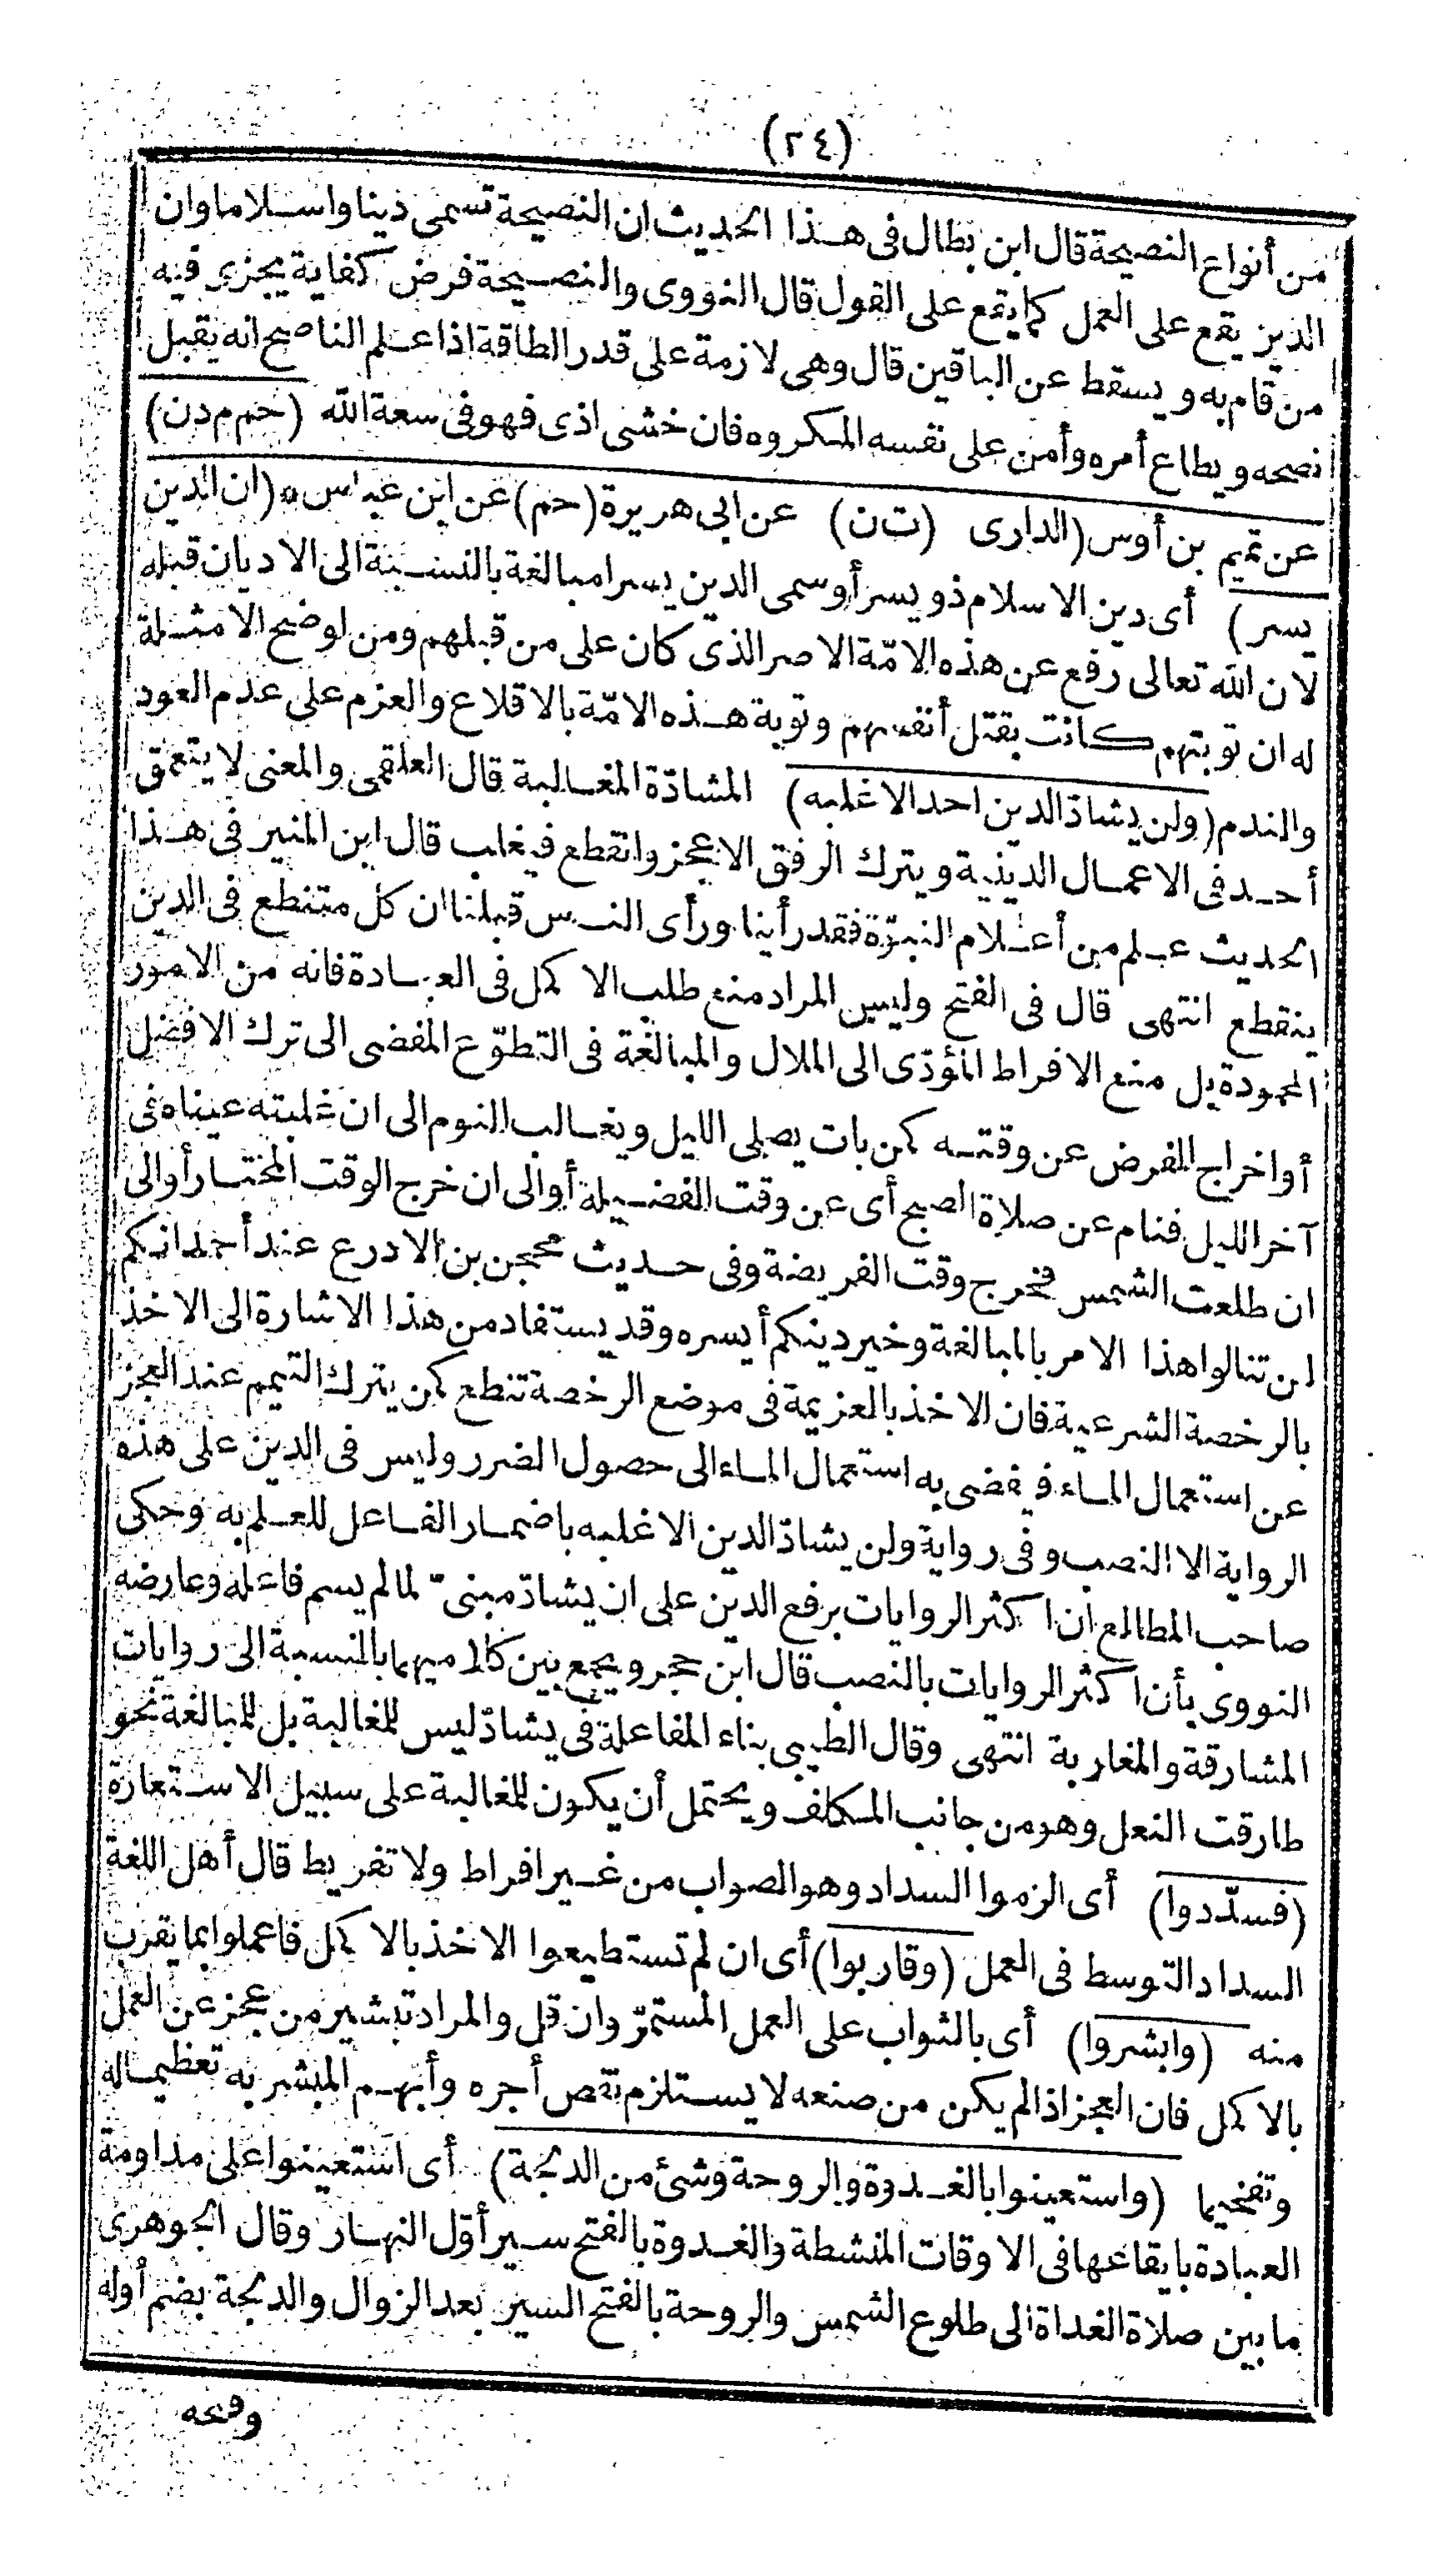 (٢٤)
من أنواع النصيحة قال ابن بطال فى هذا الحديث ان النصيحة تسمى دينا واسلاما وان
الدين يقع على العمل كما يقع على القول قال النووى والنصيحة فرض كفاية يجزى فيه
من قام به ويسقط عن الباقين قال وهى لازمة على قدر الطاقة اذا علم الناصح انه يقبل
نصحه ويطاع أمره وأمن على نفسه المكروه فان خشى اذى فهو فى سعة الله (حم م د ن)
عن تميم بن أوس (الدارى (ت ن) عن ابى هريرة (حم) عن ابن عباس ه (ان الدين
يسر) أى دين الاسلام ذو يسر أو سمى الدين يسرا مبالغة بالنسبة الى الاديان قبله
لان الله تعالى رفع عن هذه الامّة الاصر الذى كان على من قبلهم ومن اوضح الامثلة
له ان توبتهم كانت بقتل أنفسهم وتوبة هذه الامّة بالاقلاع والعزم على عدم العود
والندم (ولن يشادّ الدين احد الا غلبه) المشادّة المغالبة قال العلقمى والمعنى لا يتعمق
أحد فى الاعمال الدينية ويترك الرفق الا عجز وانقطع فيغلب قال ابن المنير فى هذا
الحديث علم من أعلام النبوّة فقد رأينا ورأى الناس قبلنا ان كل متنطع فى الدين
ينقطع انتهى قال فى الفتح وليس المراد منع طلب الاكمل فى العبادة فانه من الامور
المحمودة بل منع الافراط المؤدّى الى الملال والمبالغة فى التطوّع المفضى الى ترك الافضل
أو اخراج الفرض عن وقته كمن بات يصلى الليل ويغالب النوم الى ان غلبته عيناه فى
آخر الليل فنام عن صلاة الصبح أى عن وقت الفضيلة أو الى ان خرج الوقت المختار أو الى
ان طلعت الشمس فخرج وقت الفريضة وفى حديث محجن بن الادرع عند أحمد انكم
لن تنالوا هذا الامر بالمبالغة وخير دينكم أيسره وقد يستفاد من هذا الاشارة الى الاخذ
بالرخصة الشرعية فان الاخذ بالعزيمة فى موضع الرخصة تنطع كمن يترك التيمم عند العجز
عن استعمال الماء فيفضى به استعمال الماء الى حصول الضرر وليس فى الدين على هذه
الرواية الا النصب وفى رواية ولن يشادّ الدين الا غلبه باضمار الفاعل للعلم به وحكى
صاحب المطالع ان اكثر الروايات برفع الدين على ان يشادّ مبنىّ لما لم يسم فاعله وعارضه
النووى بأن اكثر الروايات بالنصب قال ابن حجر ويجمع بين كلاميهما بالنسبة الى روايات
المشارقة والمغاربة انتهى وقال الطيبى بناء المفاعلة فى يشادّ ليس للمغالبة بل للمبالغة نحو
طارقت النعل وهو من جانب المكلف ويحتمل أن يكون للمغالبة على سبيل الاستعارة
(فسدّدوا) أى الزموا السداد وهو الصواب من غير افراط ولا تفريط قال أهل اللغة
السداد التوسط فى العمل (وقاربوا) أى ان لم تستطيعوا الاخذ بالاكمل فاعملوا بما يقرب
منه (وابشروا) أى بالثواب على العمل المستمرّ وان قل والمراد تبشير من عجز عن العمل
بالاكمل فان العجز اذا لم يكن من صنعه لا يستلزم نقص أجره وأبهم المبشر به تعظيما له
وتفخيما (واستعينوا بالغدوة والروحة وشئ من الدلجة) أى استعينوا على مداومة
العبادة بايقاعها فى الاوقات المنشطة والغدوة بالفتح سير أوّل النهار وقال الجوهرى
ما بين صلاة الغداة الى طلوع الشمس والروحة بالفتح السير بعد الزوال والدلجة بضم أوله
وفتحه